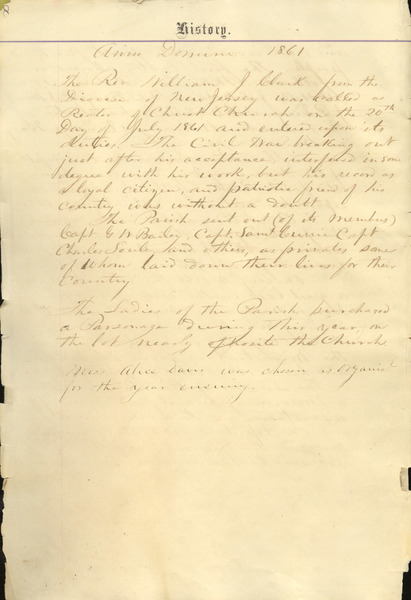 History.
Anno Domini 1861
The Rev William J Clark from the
Diocese of New Jersey was called as
Rector of Christ Church on the 20th
Day of July 1861 and entered upon its
duties. The Civil War breaking out
just after his acceptance interfered in some
degree with his work, but his record as
a loyal citizen, and patriotic friend of his
country was without a doubt.
The Parish sent out (of its members)
Capt G W Bailey, Capt. Saml Currie Capt
Charles Soule and others, as privates some
of whom laid down their lives for their
Country
The Ladies of the Parish purchased
a Parsonage during this year, on
the lot nearly opposite the Church
Miss Alice Davis was chosen as Organist
for the year ensuing.